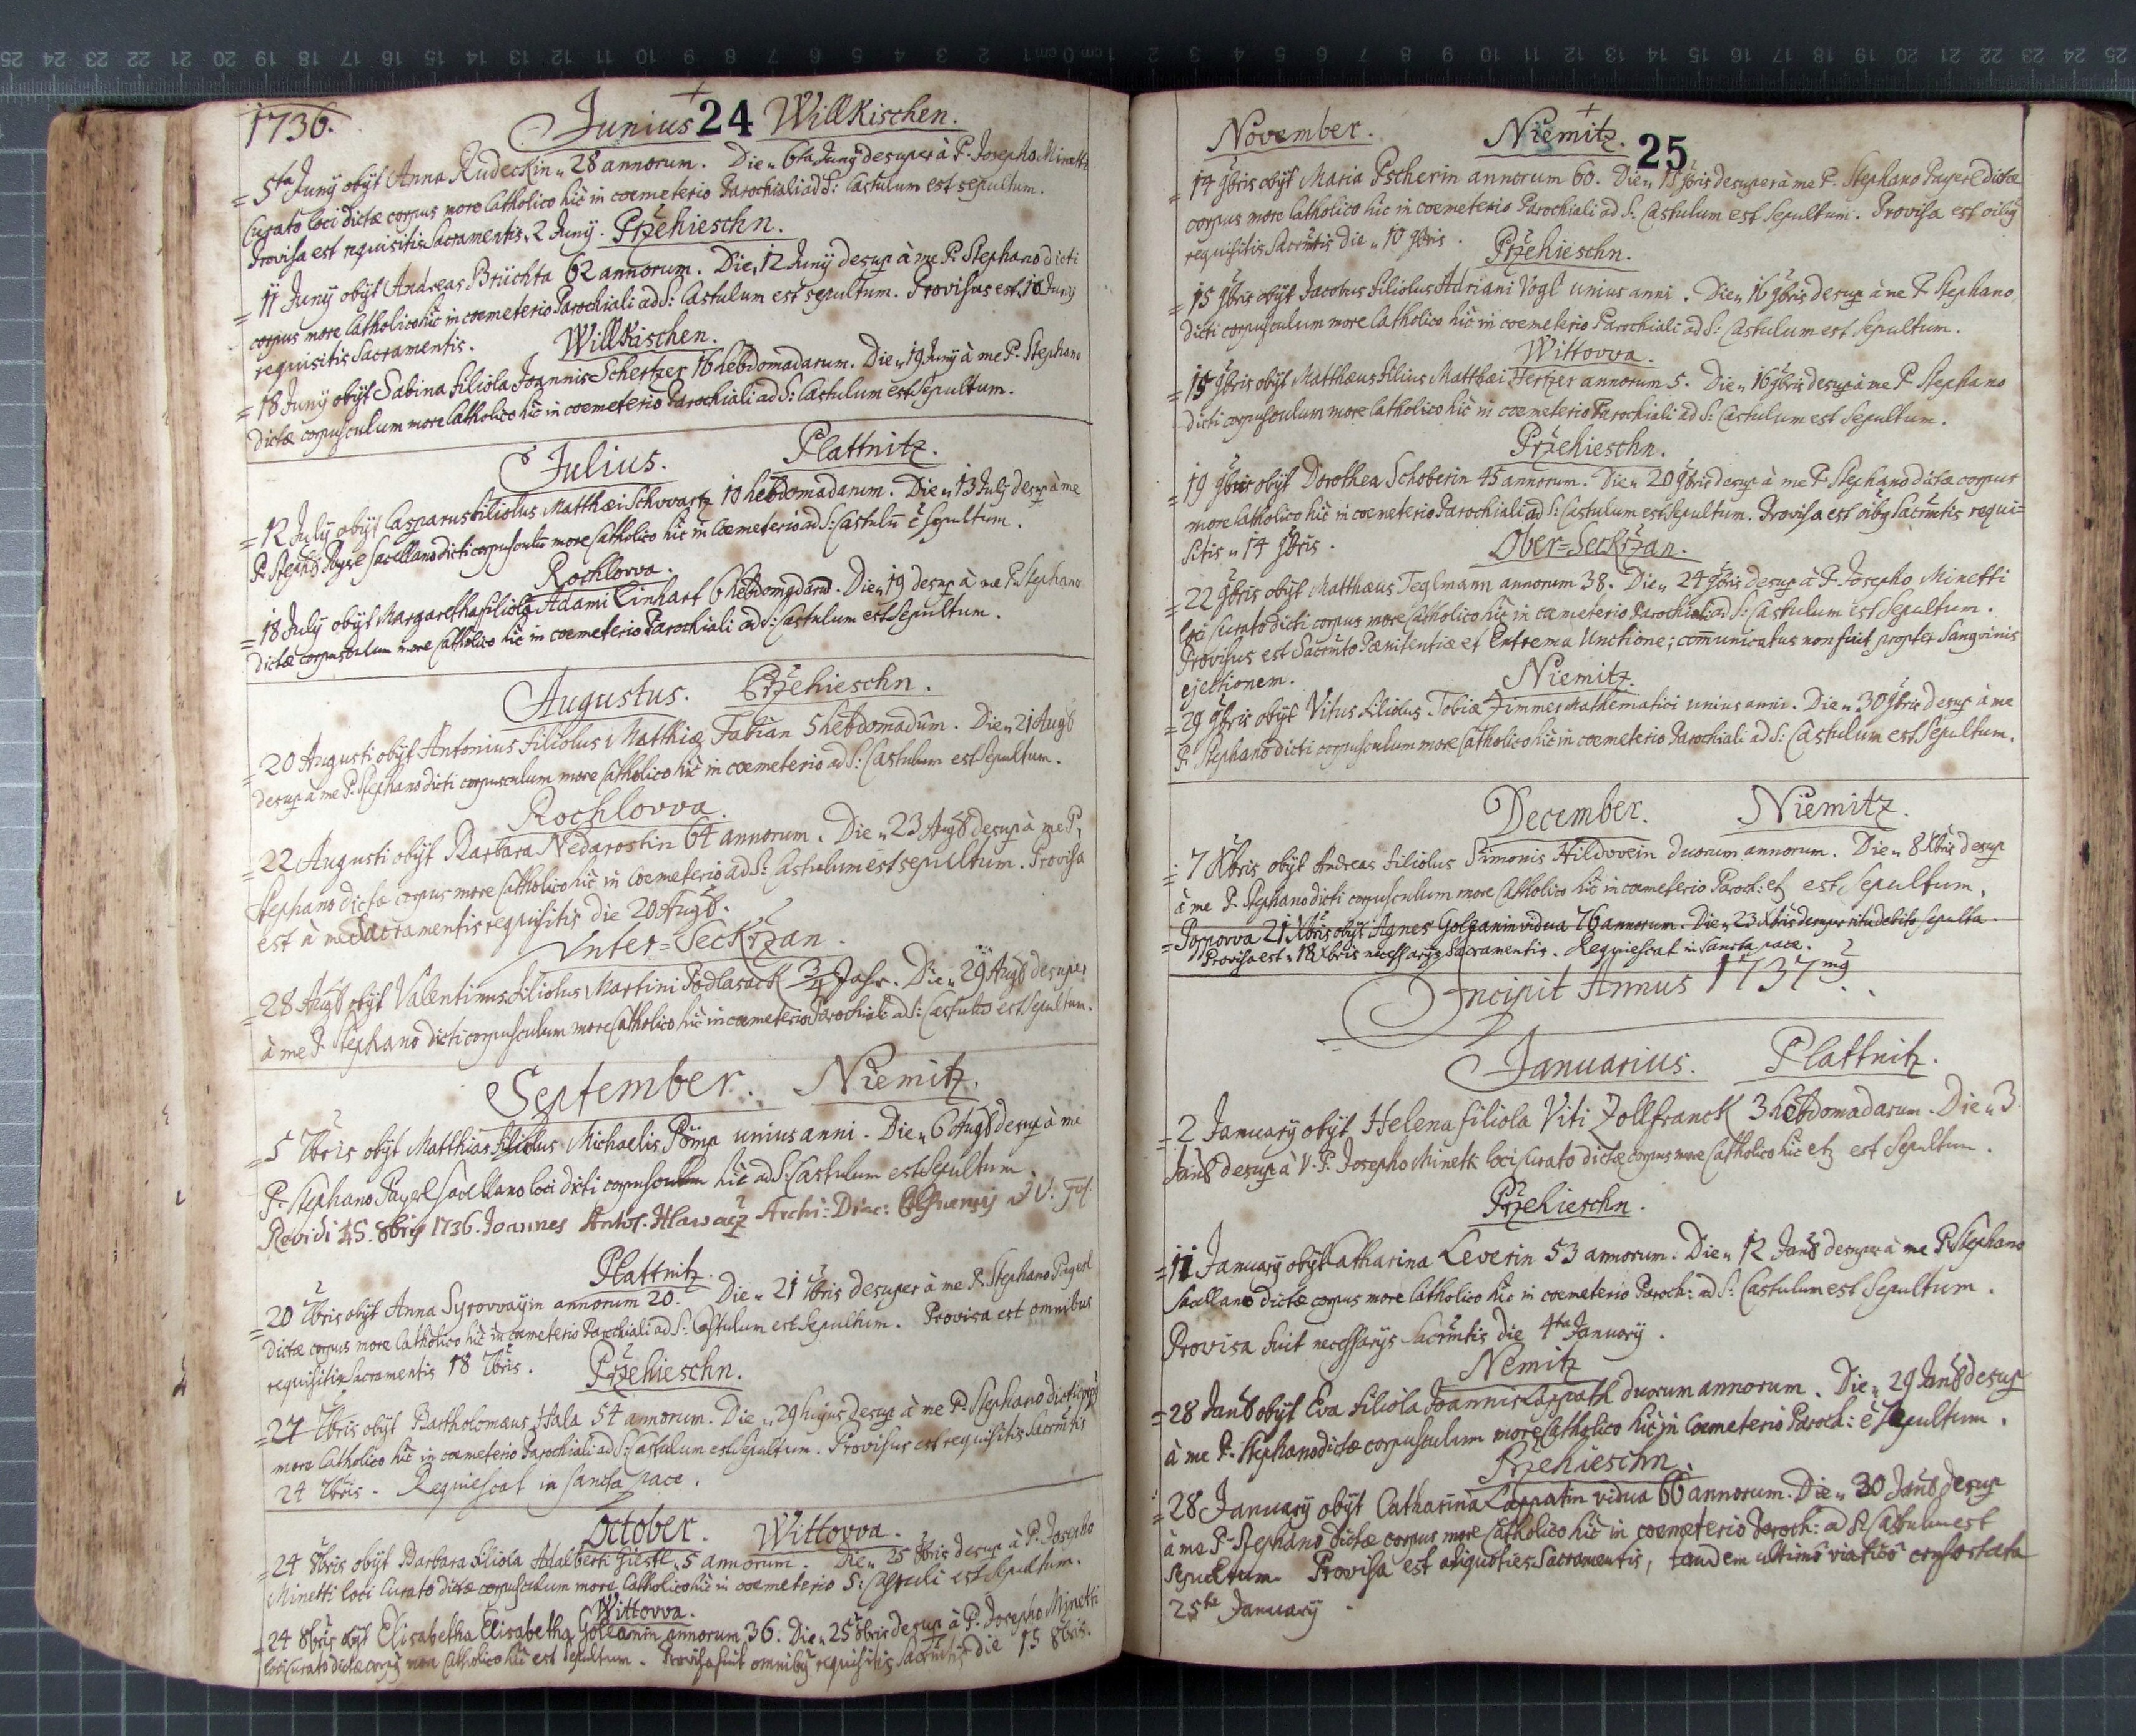 1736. Junius 24 Willkischen.
= 5ta Junÿ obijt Anna Rudeckin „ 28 annorum. Die „ 6ta Junÿ desuper à P. Josepho Minetti
Curato loci dictæ corpus more Catholico hic in coemeterio Parochiali ad S: Castulum est sepultum.
Provisa est requisitis Sacramentis „ 2 Junÿ. Przehieschn.
= 11 Junÿ obijt Andreas Brüchta 62 annorum. Die „ 12 Junÿ desup à me P. Stephano dicti
corpus more Catholico hic in coemeterio Parochiali ad S: Castulum est sepultum. Provisus est „ 10 Junÿ
requisitis Sacramentis. Willkischen.
= 18 Junÿ obijt Sabina filiola Joannis Schertzer 16 hebdomadarum. Die „ 19 Junÿ à me P. Stephano
dictæ corpusculum more Catholico hic in coemeterio Parochiali ad S: Castulum est Sepultum.
Julius. Plattnitz.
= 12 Julÿ obijt Casparus filiolus Matthæi Schwartz 10 hebdomadarum. Die „ 13 Julÿ desup à me
P. Stepho Sacellano dicti corpusculu more Catholico hic in Coemeterio ad S: Castulu ē Sepultum.
Rochlovva.
= 18 Julÿ obijt Margaretha filiola Adami Linhart 6 hebdomadaru. Die „ 19 desup à me P. Stephano
dictæ corpusculum more Catholico hic in coemeterio Parochiali ad S: Castulum est Sepultum.
Augustus. Przehieschn.
= 20 Augusti obijt Antonius filiolus Matthiæ Fabian 5 hebdomadūm. Die „ 21 Aug
desup à me P. Stephano dicti corpusculum more Catholico hic in coemeterio ad S: Castulum est Sepultum.
Rochlovva.
= 22 Augusti obijt Barbara Nedarostin 64 annorum. Die „ 23 Aug desup à me P.
Stephano dictæ corpus more Catholico hic in Coemeterio ad S: Castulum est sepultum. Provisa
est à me Sacramentis requisitis die 20 Aug.
Unter=Seckrzan.
= 28 Aug obijt Valentinus filiolus Martini Podlasack 3/4 Jahr. Die „ 29 Aug desuper
à me P. Stephano dicti corpusculum more Catholico hic in coemeterio Parochiali ad S: Castulū est Sepultum.
September. Niemitz.
= 5 7bris obijt Matthias filiolus Michaelis Pömp unius anni. Die „ 6 Aug desup à me
P. Stephano Payerl Sacellano loci dicti corpusculum hic ad S: Castulum est Sepultum.
Revidi 15. 8bris 1736. Joannes Anto. Archi-Diac:
Plattnitz.
= 20 7bris obijt Anna Syrovvaÿin annorum 20. Die „ 21 7bris desuper à me P. Stephano Payerl
Dictæ corpus more Catholico hic in coemeterio Parochiali ad S: Castulum est Sepultum. Provisa est omnibus
requisitis Sacramentis 18 7bris. Przehieschn.
= 27 7bris obijt Bartholomæus Hala 54 annorum. Die „ 29 hujus desup à me P. Stephano dicti
more Catholico hic in coemeterio Parochiali ad S: Castulum est Sepultum. Provisus est requisitis Sacrmtis
24 7bris. Requiescat in sancta pace.
October. Wittovva.
= 24 8bris obijt Barbara filiola Adalberti Giestl „ 5 annorum. Die „ 25 8bris desup à P. Josepho
Minetti loci Curato dictæ corpusculum more Catholico hic in coemeterio S: Castuli est Sepultum.
Wittovva.
= 24 8bris obijt Elisabetha Elisabetha annorum 36. Die „ 25 8bris desup à P. Josepho Minetti
loci Curato dictæ corpus more Catholico hic est Sepultum. Provisa fuit omnibus requisitis Sacrmtis die 15 8bris.
November. Niemitz. 25
= 14 9bris obijt Maria Pscherin annorum 60. Die „ 15 9bris desuper à me P. Stephano Payerl dictæ
corpus more Catholico hic in coemeterio Parochiali ad S: Castulum est Sepultum. Provisa est
requisitis Sacrmtis die „ 10 9bris. Przehieschn.
= 15 9bris obijt Jacobus filiolus Adriani Vogl unius anni. Die „ 16 9bris desup à me P. Stephano
dicti corpusculum more Catholico hic in coemeterio Parochiali ad S: Castulum est Sepultum.
Wittovva.
= 15 9bris obijt Matthæus filius Matthæi annorum 5. Die „ 16 9bris desup à me P. Stephano
dicti corpusculum more Catholico hic in coemeterio Parochiali ad S: Castulum est Sepultum.
Przehieschn.
= 19 9bris obijt Dorothea Schoberin 45 annorum. Die „ 20 9bris desup à me P. Stephano dictæ corpus
more Catholico hic in coemeterio Parochiali ad S: Castulum est Sepultum. Provisa est oibg Sacrmtis requi=
sitis „ 14 9bris. Ober=Seckrzan.
= 22 9bris obijt Matthæus Teglmann annorum 38. Die „ 24 9bris desup à P. Josepho Minetti
loci Curato dicti corpus more Catholico hic in coemeterio Parochiali ad S: Castulum est Sepultum.
Provisus est Sacrmto Pænitentiæ et Extrema Unctione; com̄unicatus non fuit propter Sanguinis
ejectionem. Niemitz.
= 29 9bris obijt Vitus filiolus Tobiæ Zimmer Mathematici unius anni. Die „ 30 9bris desup à me
P. Stephano dicti corpusculum more Catholico hic in coemeterio Parochiali ad S: Castulum est Sepultum.
December. Niemitz.
= 7 Xbris obijt Andreas filiolus Simonis Hildwein duorum annorum. Die „ 8 Xbris desup
à me P. Stephano dicti corpusculum more Catholico hic in coemeterio Paroch: etz est Sepultum.
= Popovva 21 Xbris obijt Agnes vidua 76 annorum. Die „ 23 Xbris desuper ritu debito Sepulta.
Provisa est „ 18 Xbris necessarijs Sacramentis. Requiescat in sancta pace.
Incipit Annus 1737mg.
Januarius. Plattnitz.
= 2 Januarÿ obijt Helena filiola Viti Zollfranck 3 hebdomadarum. Die „ 3
Jan desup à V. P. Josepho Minetti loci Curato dictæ corpus more Catholico hic etz est Sepultum.
Przehieschn.
= 11 Januarÿ obijt Catharina Leverin 53 annorum. Die „ 12 Jan desuper à me P. Stephano
Sacellano dictæ corpus more Catholico hic in coemeterio Paroch: ad S: Castulum est Sepultum.
Provisa fuit necessarijs Sacrmtis die 4ta Januarÿ.
Nemitz
= 28 Jan obijt Eva filiola Joannis Lappath duorum annorum. Die „ 29 Jan desup
à me P. Stephano dictæ corpusculum more Catholico hic in Coemeterio Paroch: ē Sepultum.
Przehieschn.
= 28 Januarÿ obijt Catharina Lappatin vidua 66 annorum. Die „ 30 Jan desup
à me P. Stephano dictæ corpus more Catholico hic in coemeterio Paroch: ad S: Castulum est
Sepultum. Provisa est aliquoties Sacramentis, tandem ultimo viatico confortata
25ta Januarÿ.